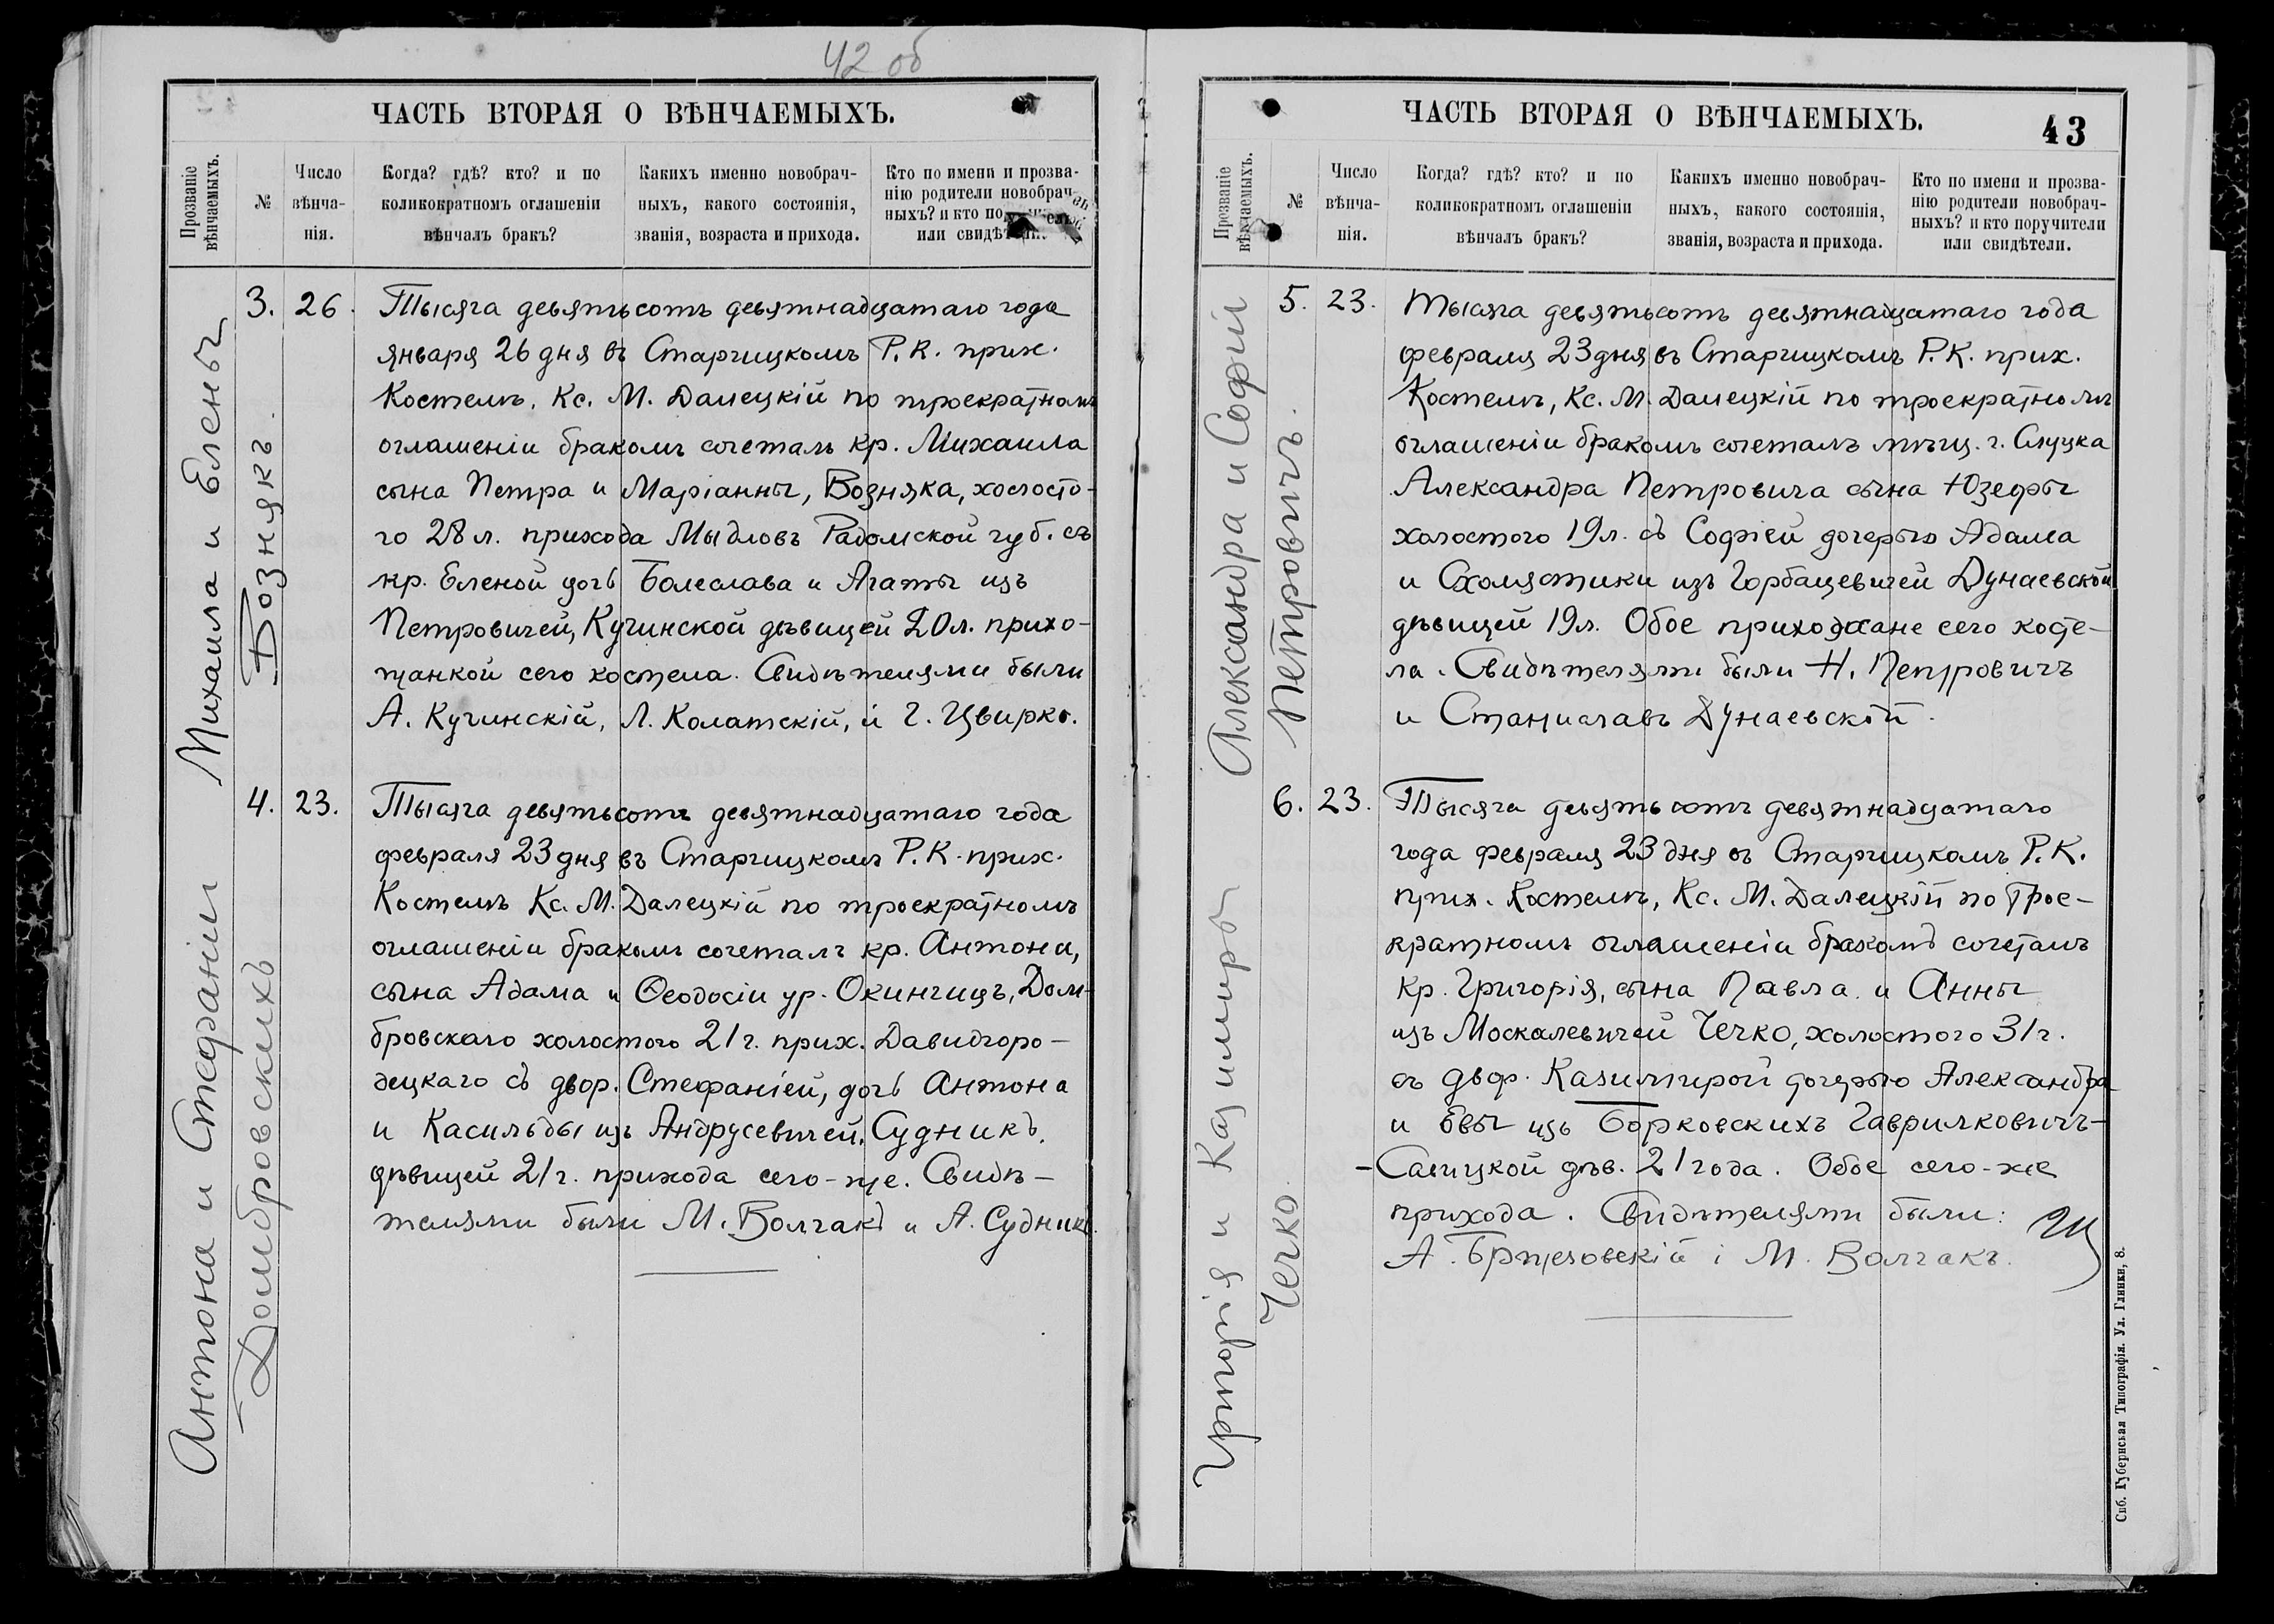 42 об
ЧАСТЬ ВТОРАЯ О ВѢНЧАЕМЫХЪ.
Прозваніе вѣнчаемыхъ.
№
Число вѣнча- нія.
Когда? гдѣ? кто? и по
коликократномъ оглашеніи
вѣнчалъ бракъ?
Какихъ именно новобрач-
ныхъ, какого состоянія,
званія, возраста и прихода.
Кто по имени и прозва-
нію родители новобрач-
ныхъ? и кто
или
Михаила и Елены
Вознякъ.
3. 26.
Тысяча девятьсотъ девятнадцатаго года
января 26 дня въ Старчицкомъ Р. К. прих.
Костелѣ, Кс. М. Далецкій по троекратномъ
оглашеніи бракомъ сочеталъ кр. Михаила
сына Петра и Маріанны, Возняка, холосто-
го 28 л. прихода Мыдловъ Радомской губ. съ
кр. Еленой дочь Болеслава и Агаты изъ
Петровичей, Кучинской дѣвицей 20 л. прихо-
жанкой сего костела. Свидѣтелями были
А. Кучинскій, Л. Колатскій, и Г. Цвирко.
Антона и Стефаніи
Домбровскихъ
4. 23.
Тысяча девятьсотъ девятнадцатаго года
февраля 23 дня въ Старчицкомъ Р. К. прих.
Костелѣ Кс. М. Далецкій по троекратномъ
оглашеніи бракомъ сочеталъ кр. Антона,
сына Адама и Ѳеодосіи ур. Окинчицъ, Дом-
бровскаго холостого 21 г. прих. Давидгоро-
децкаго съ двор. Стефаніей, дочь Антона
и Касильды изъ Андрусевичей, Судникъ,
дѣвицей 21 г. прихода сего-же. Свидѣ-
телями были М. Волчакъ и А. Судникъ.
ЧАСТЬ ВТОРАЯ О ВѢНЧАЕМЫХЪ.
43
Прозваніе вѣнчаемыхъ.
№
Число вѣнча- нія.
Когда? гдѣ? кто? и по
коликократномъ оглашеніи
вѣнчалъ бракъ?
Какихъ именно новобрач-
ныхъ, какого состоянія,
званія, возраста и прихода.
Кто по имени и прозва-
нію родители новобрач-
ныхъ? и кто поручители
или свидѣтели.
Александра и Софіи
Петровичъ.
5. 23.
Тысяча девятьсотъ девятнадцатаго года
февраля 23 дня въ Старчицкомъ Р. К. прих.
Костелѣ, Кс. М. Далецкій по троекратномъ
оглашеніи бракомъ сочеталъ мѣщ. г. Слуцка
Александра Петровича сына Юзефы
холостого 19 л. съ Софіей дочерью Адама
и Схолястики изъ Горбацевичей Дунаевской
дѣвицей 19 л. Обое прихожане сего косте-
ла. Свидѣтелями были Н. Петровичъ
и Станиславъ Дунаевскій.
Григорія и Казимиры
Чечко.
6. 23.
Тысяча девятьсотъ девятнадцатаго
года февраля 23 дня въ Старчицкомъ Р. К.
прих. Костелѣ, Кс. М. Далецкій по трое-
кратномъ оглашеніи бракомъ сочеталъ
кр. Григорія, сына Павла и Анны
изъ Москалевичей Чечко, холостого 31 г.
съ двор. Казимирой дочерью Александра
и Евы изъ Борковскихъ Гаврилковичъ-
-Савицкой дѣв. 21 года. Обое сего-же
прихода. Свидѣтелями были:
А. Бржезовскій і М. Волчакъ.
Спб. Губернская Типографія. Ул. Глинки, 8.